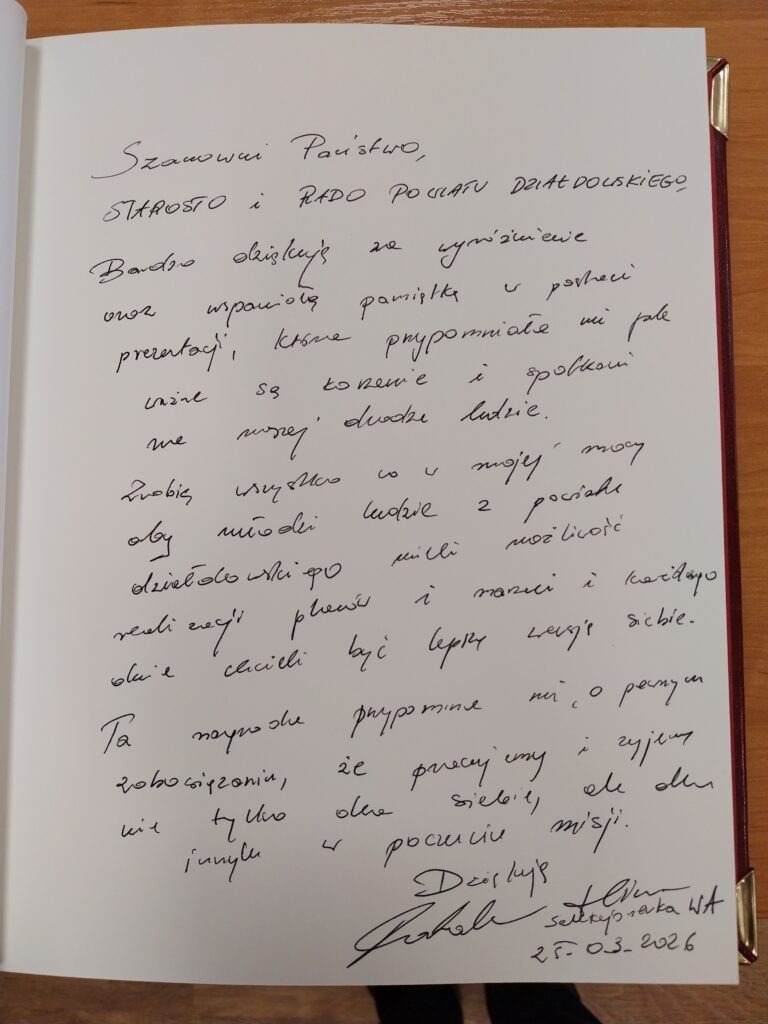 Szanowni Państwo,
STAROSTO i RADO POWIATU DZIAŁDOWSKIEGO
Bardzo dziękuję za wyróżnienie
oraz wspaniałą pamiątkę w postaci
prezentacji, która przypomniała mi jak
ważne są korzenie i spotkani
na naszej drodze ludzie.
Zrobię wszystko co w mojej mocy
aby młodzi ludzie z powiatu
działdowskiego mieli możliwość
realizacji planów i marzeń i każdego
dnia chcieli być lepszą wersją siebie.
Ta nagroda przypomina mi, o pewnym
zobowiązaniu, że pracujemy i żyjemy
nie tylko dla siebie, ale dla
innych w poczuciu misji.
Dziękuję
WA
25-03-2026